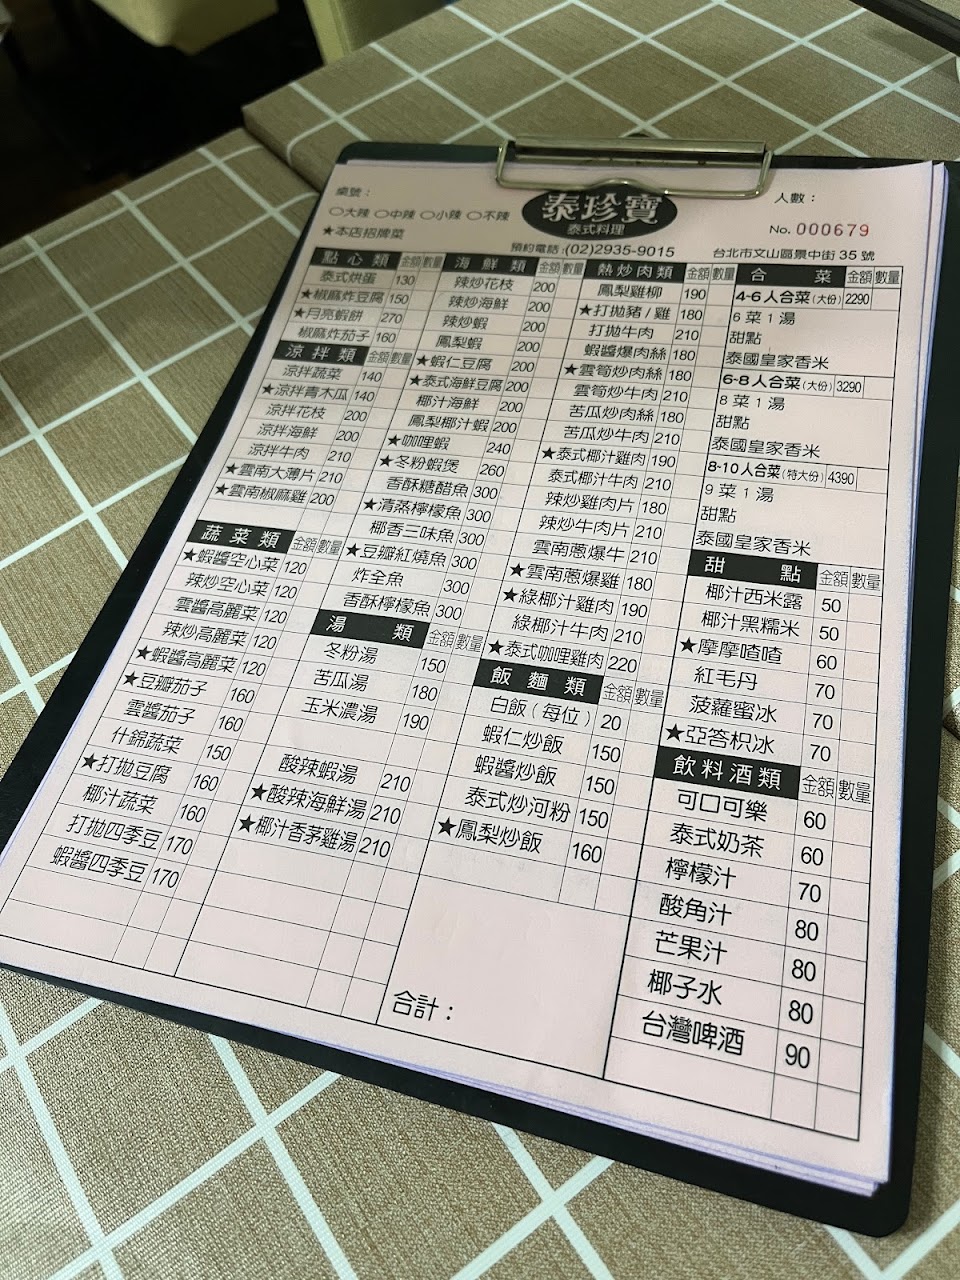 桌號：
人數：
○大辣 ○中辣 ○小辣 ○不辣
泰珍寶
泰式料理
No. 000679
★本店招牌菜
預約電話:(02)2935-9015
台北市文山區景中街 35 號
點心類 金額 數量
泰式烘蛋 130
★椒麻炸豆腐 150
★月亮蝦餅 270
椒麻炸茄子 160
涼拌類 金額 數量
涼拌蔬菜 140
★涼拌青木瓜 140
涼拌花枝 200
涼拌海鮮 200
涼拌牛肉 210
★雲南大薄片 210
★雲南椒麻雞 200
蔬菜類 金額 數量
★蝦醬空心菜 120
辣炒空心菜 120
雲醬高麗菜 120
辣炒高麗菜 120
★蝦醬高麗菜 120
★豆瓣茄子 160
雲醬茄子 160
什錦蔬菜 150
★打拋豆腐 160
椰汁蔬菜 160
打拋四季豆 170
蝦醬四季豆 170
海鮮類 金額 數量
辣炒花枝 200
辣炒海鮮 200
辣炒蝦 200
鳳梨蝦 200
★蝦仁豆腐 200
★泰式海鮮豆腐 200
椰汁海鮮 200
鳳梨椰汁蝦 200
★咖哩蝦 240
★冬粉蝦煲 260
香酥糖醋魚 300
★清蒸檸檬魚 300
椰香三味魚 300
★豆瓣紅燒魚 300
炸全魚 300
香酥檸檬魚 300
湯類 金額 數量
冬粉湯 150
苦瓜湯 180
玉米濃湯 190
酸辣蝦湯 210
★酸辣海鮮湯 210
★椰汁香茅雞湯 210
熱炒肉類 金額 數量
鳳梨雞柳 190
★打拋豬/雞 180
打拋牛肉 210
蝦醬爆肉絲 180
★雲筍炒肉絲 180
雲筍炒牛肉 210
苦瓜炒肉絲 180
苦瓜炒牛肉 210
★泰式椰汁雞肉 190
泰式椰汁牛肉 210
辣炒雞肉片 180
辣炒牛肉片 210
雲南蔥爆牛 210
★雲南蔥爆雞 180
★綠椰汁雞肉 190
綠椰汁牛肉 210
★泰式咖哩雞肉 220
飯麵類 金額 數量
白飯(每位) 20
蝦仁炒飯 150
蝦醬炒飯 150
泰式炒河粉 150
★鳳梨炒飯 160
合計：
合菜 金額 數量
4-6人合菜(大份) 2290
6 菜 1 湯
甜點
泰國皇家香米
6-8人合菜(大份) 3290
8 菜 1 湯
甜點
泰國皇家香米
8-10人合菜(特大份) 4390
9 菜 1 湯
甜點
泰國皇家香米
甜點 金額 數量
椰汁西米露 50
椰汁黑糯米 50
★摩摩喳喳 60
紅毛丹 70
菠蘿蜜冰 70
★亞答枳冰 70
飲料酒類 金額 數量
可口可樂 60
泰式奶茶 60
檸檬汁 70
酸角汁 80
芒果汁 80
椰子水 80
台灣啤酒 90